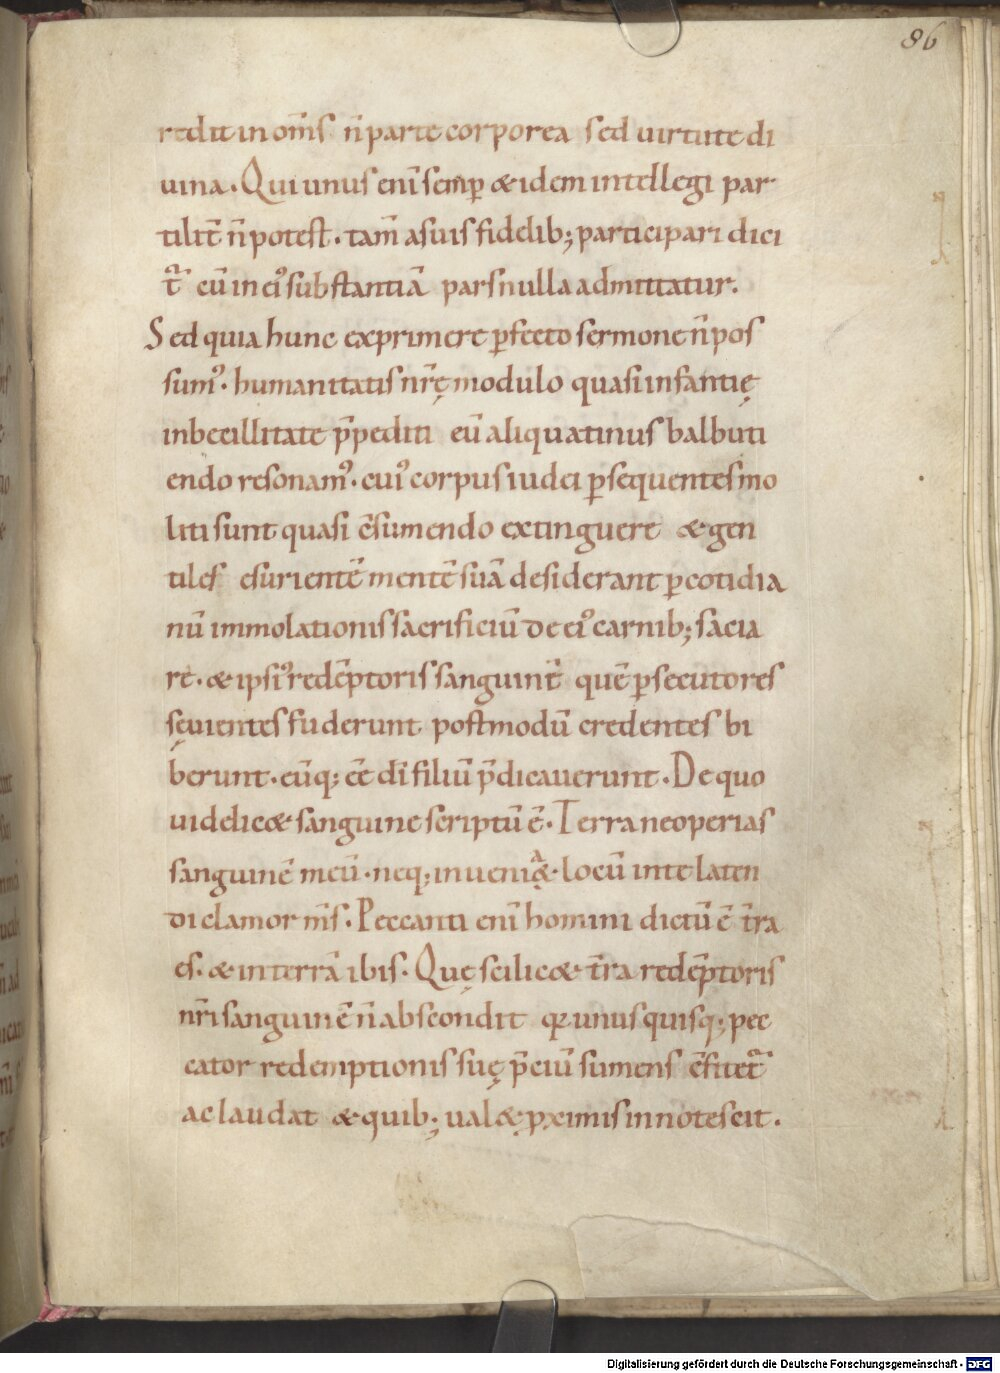 86
redit in om̅s n̅ parte corporea sed uirtute di
uina. Qui unus eni̅ semp̱ & idem intellegi par
tilit̅ n̅ potest. tam̅ a suis fidelib; participari dici
t᷒ cu̅ in ei᾽ substantia̅ pars nulla admittatur.
Sed quia hunc exprimere ꝑfecto sermone n̅ pos
sum᾽. humanitatis nr̅ę modulo quasi infantię
inbecillitate p̅pediti eu̅ aliquatinus balbuti
endo resonam᾽. cui᾽ corpus iudei ꝑsequentes mo
liti sunt quasi c̅sumendo extinguere & gen
tiles esuriente̅ mente̅ sua̅ desiderant ꝑ cotidia
nu̅ immolationis sacrificiu̅ de ei᾽ carnib; sacia
re. & ipsi᾽ rede̅ptoris sanguine̅ que̅ ꝑsecutores
sęuientes fuderunt postmodu̅ credentes bi
berunt. eu̅q; e̅e di̅ filiu̅ p̅dicauerunt. De quo
uidelic& sanguine scriptu̅ e̅. Terra ne operias
sanguine̅ meu̅. neq; inueniat locu̅ in te laten
di clamor m̅s. Peccanti eni̅ homini dictu̅ e̅ t̅ra
es. & in terra̅ ibis. Quę scilic& t̅ra rede̅ptoris
nr̅i sanguine̅ n̅ abscondit qꝛ unusquisq; pec
cator redemptionis suę p̅ciu̅ sumens c̅fitet᷒
ac laudat & quib; ual& ꝓximis innotescit.
Digitalisierung gefördert durch die Deutsche Forschungsgemeinschaft - DFG